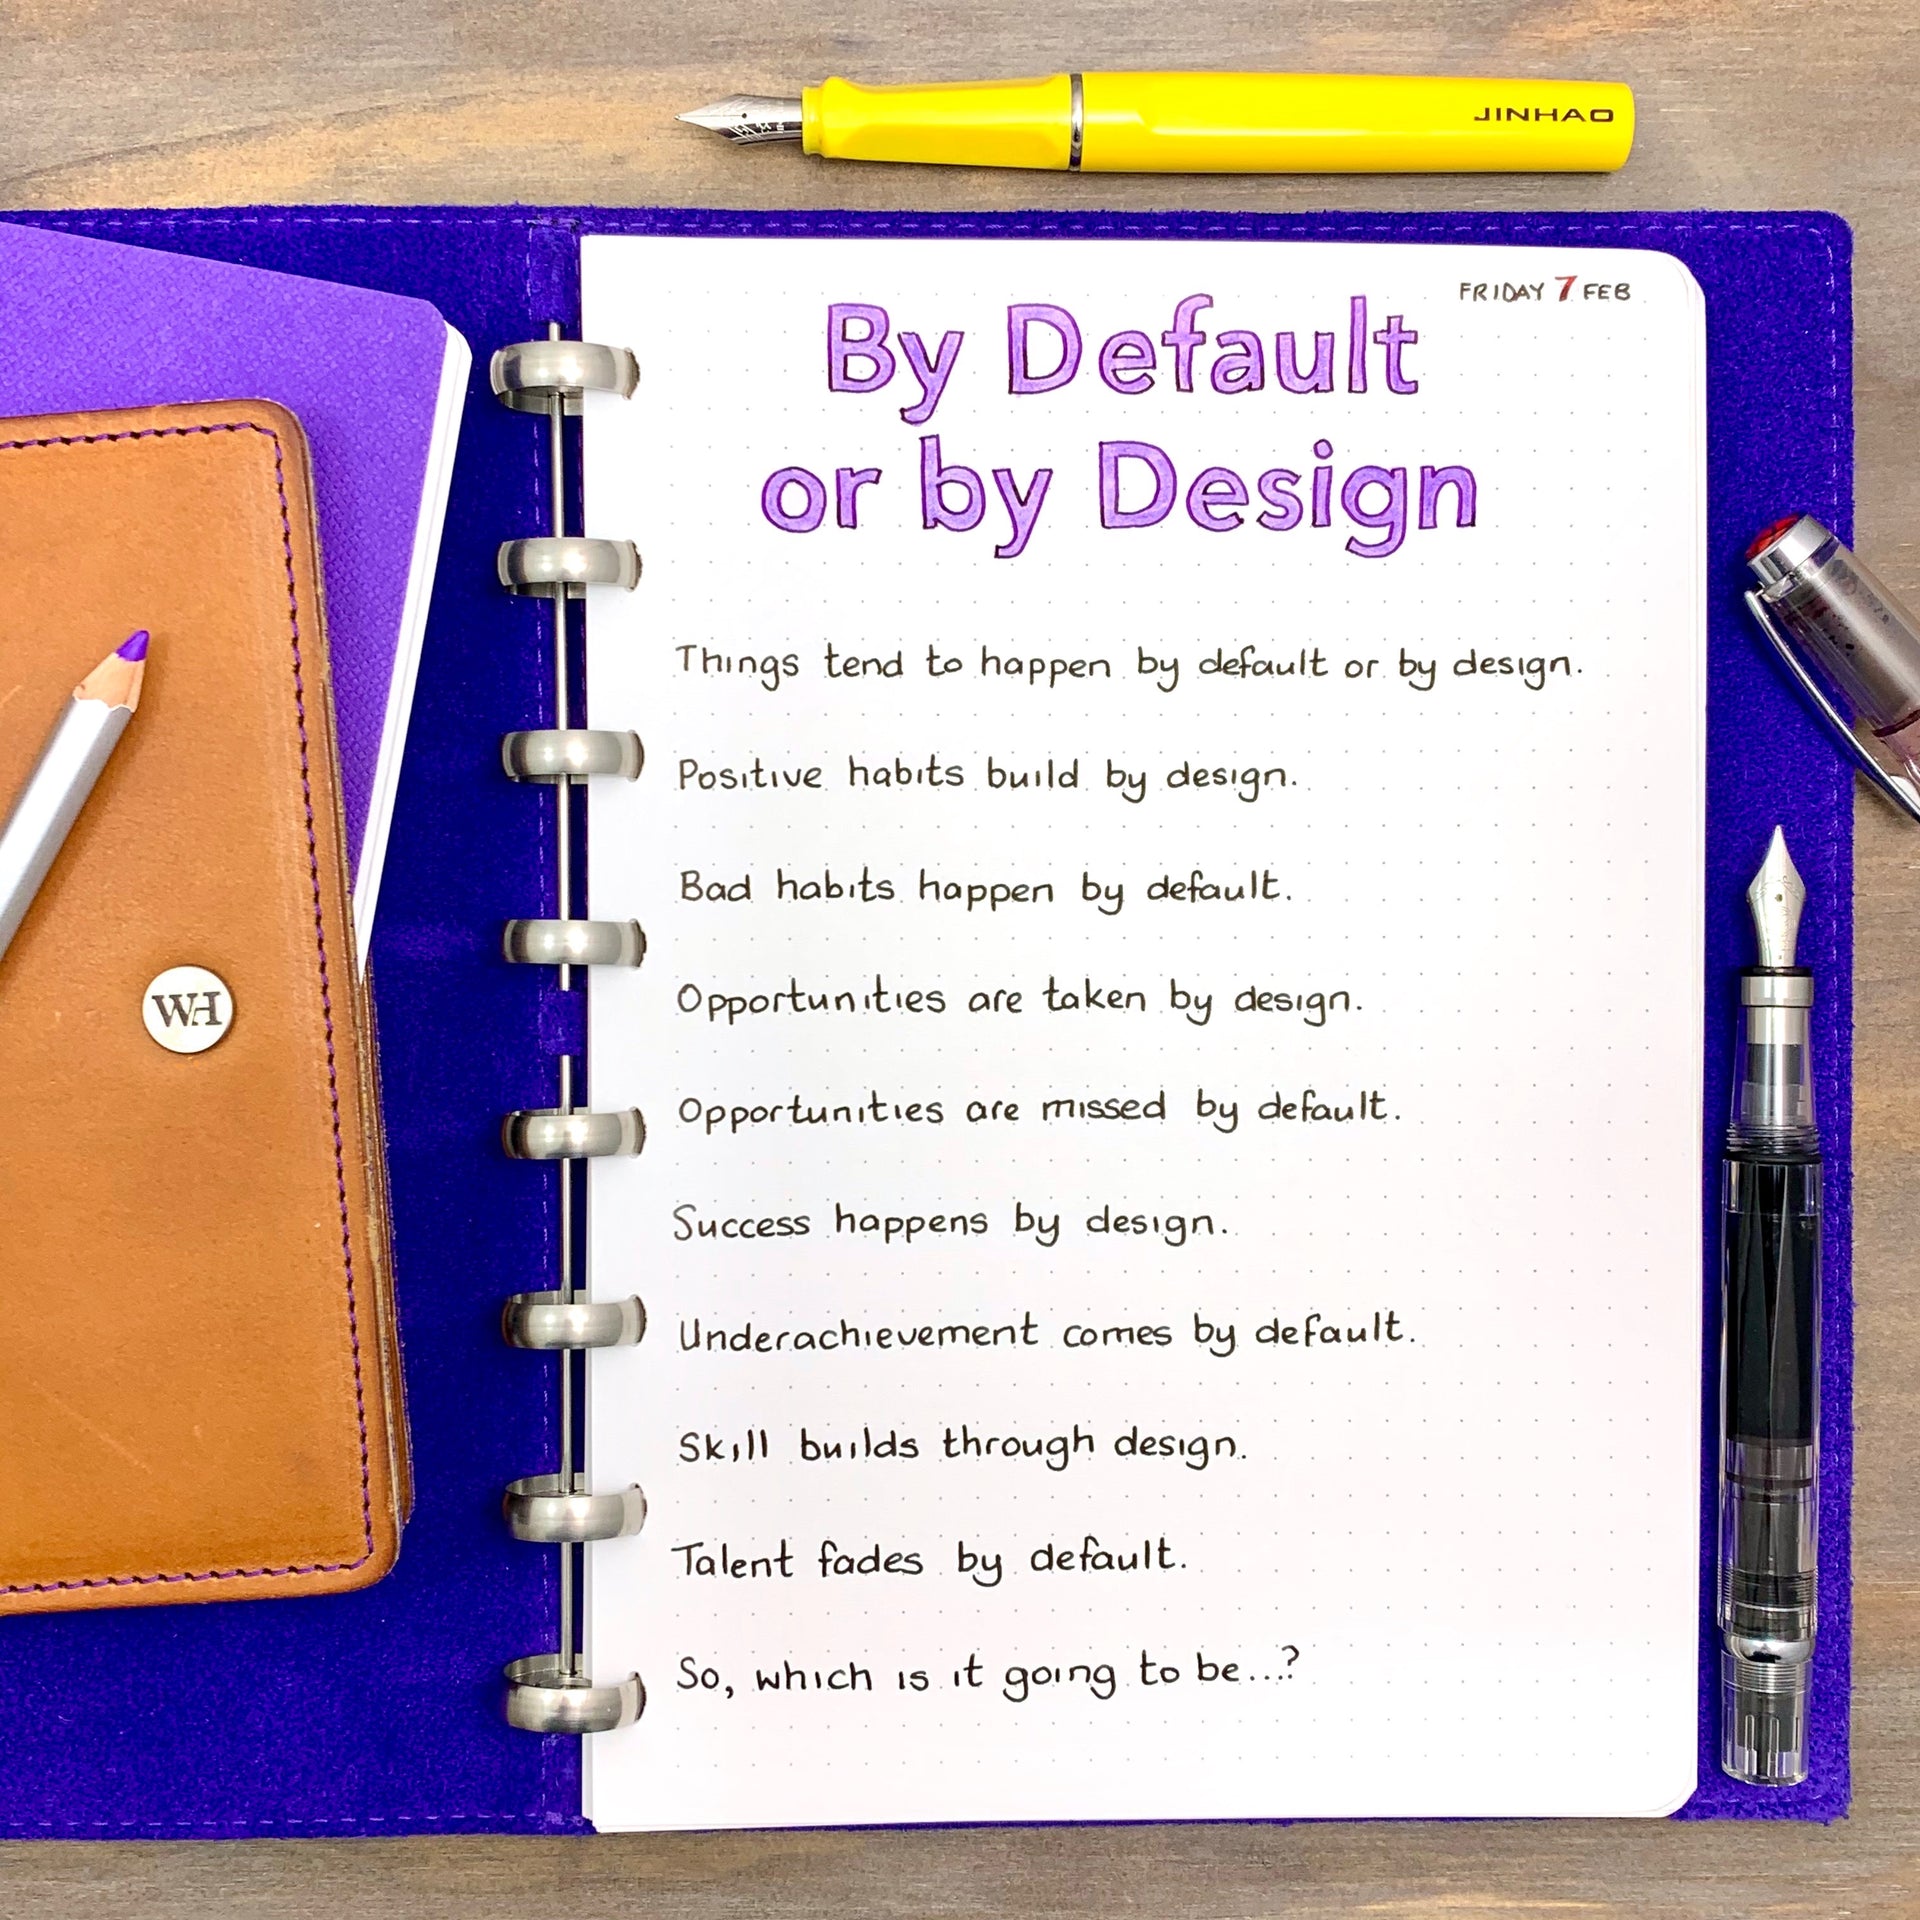 JINHAO
FRIDAY 7 FEB
By Default
or by Design
Things tend to happen by default or by design.
Positive habits build by design.
Bad habits happen by default.
Opportunities are taken by design.
Opportunities are missed by default.
Success happens by design.
Underachievement comes by default.
Skill builds through design.
Talent fades by default.
So, which is it going to be...?
WH